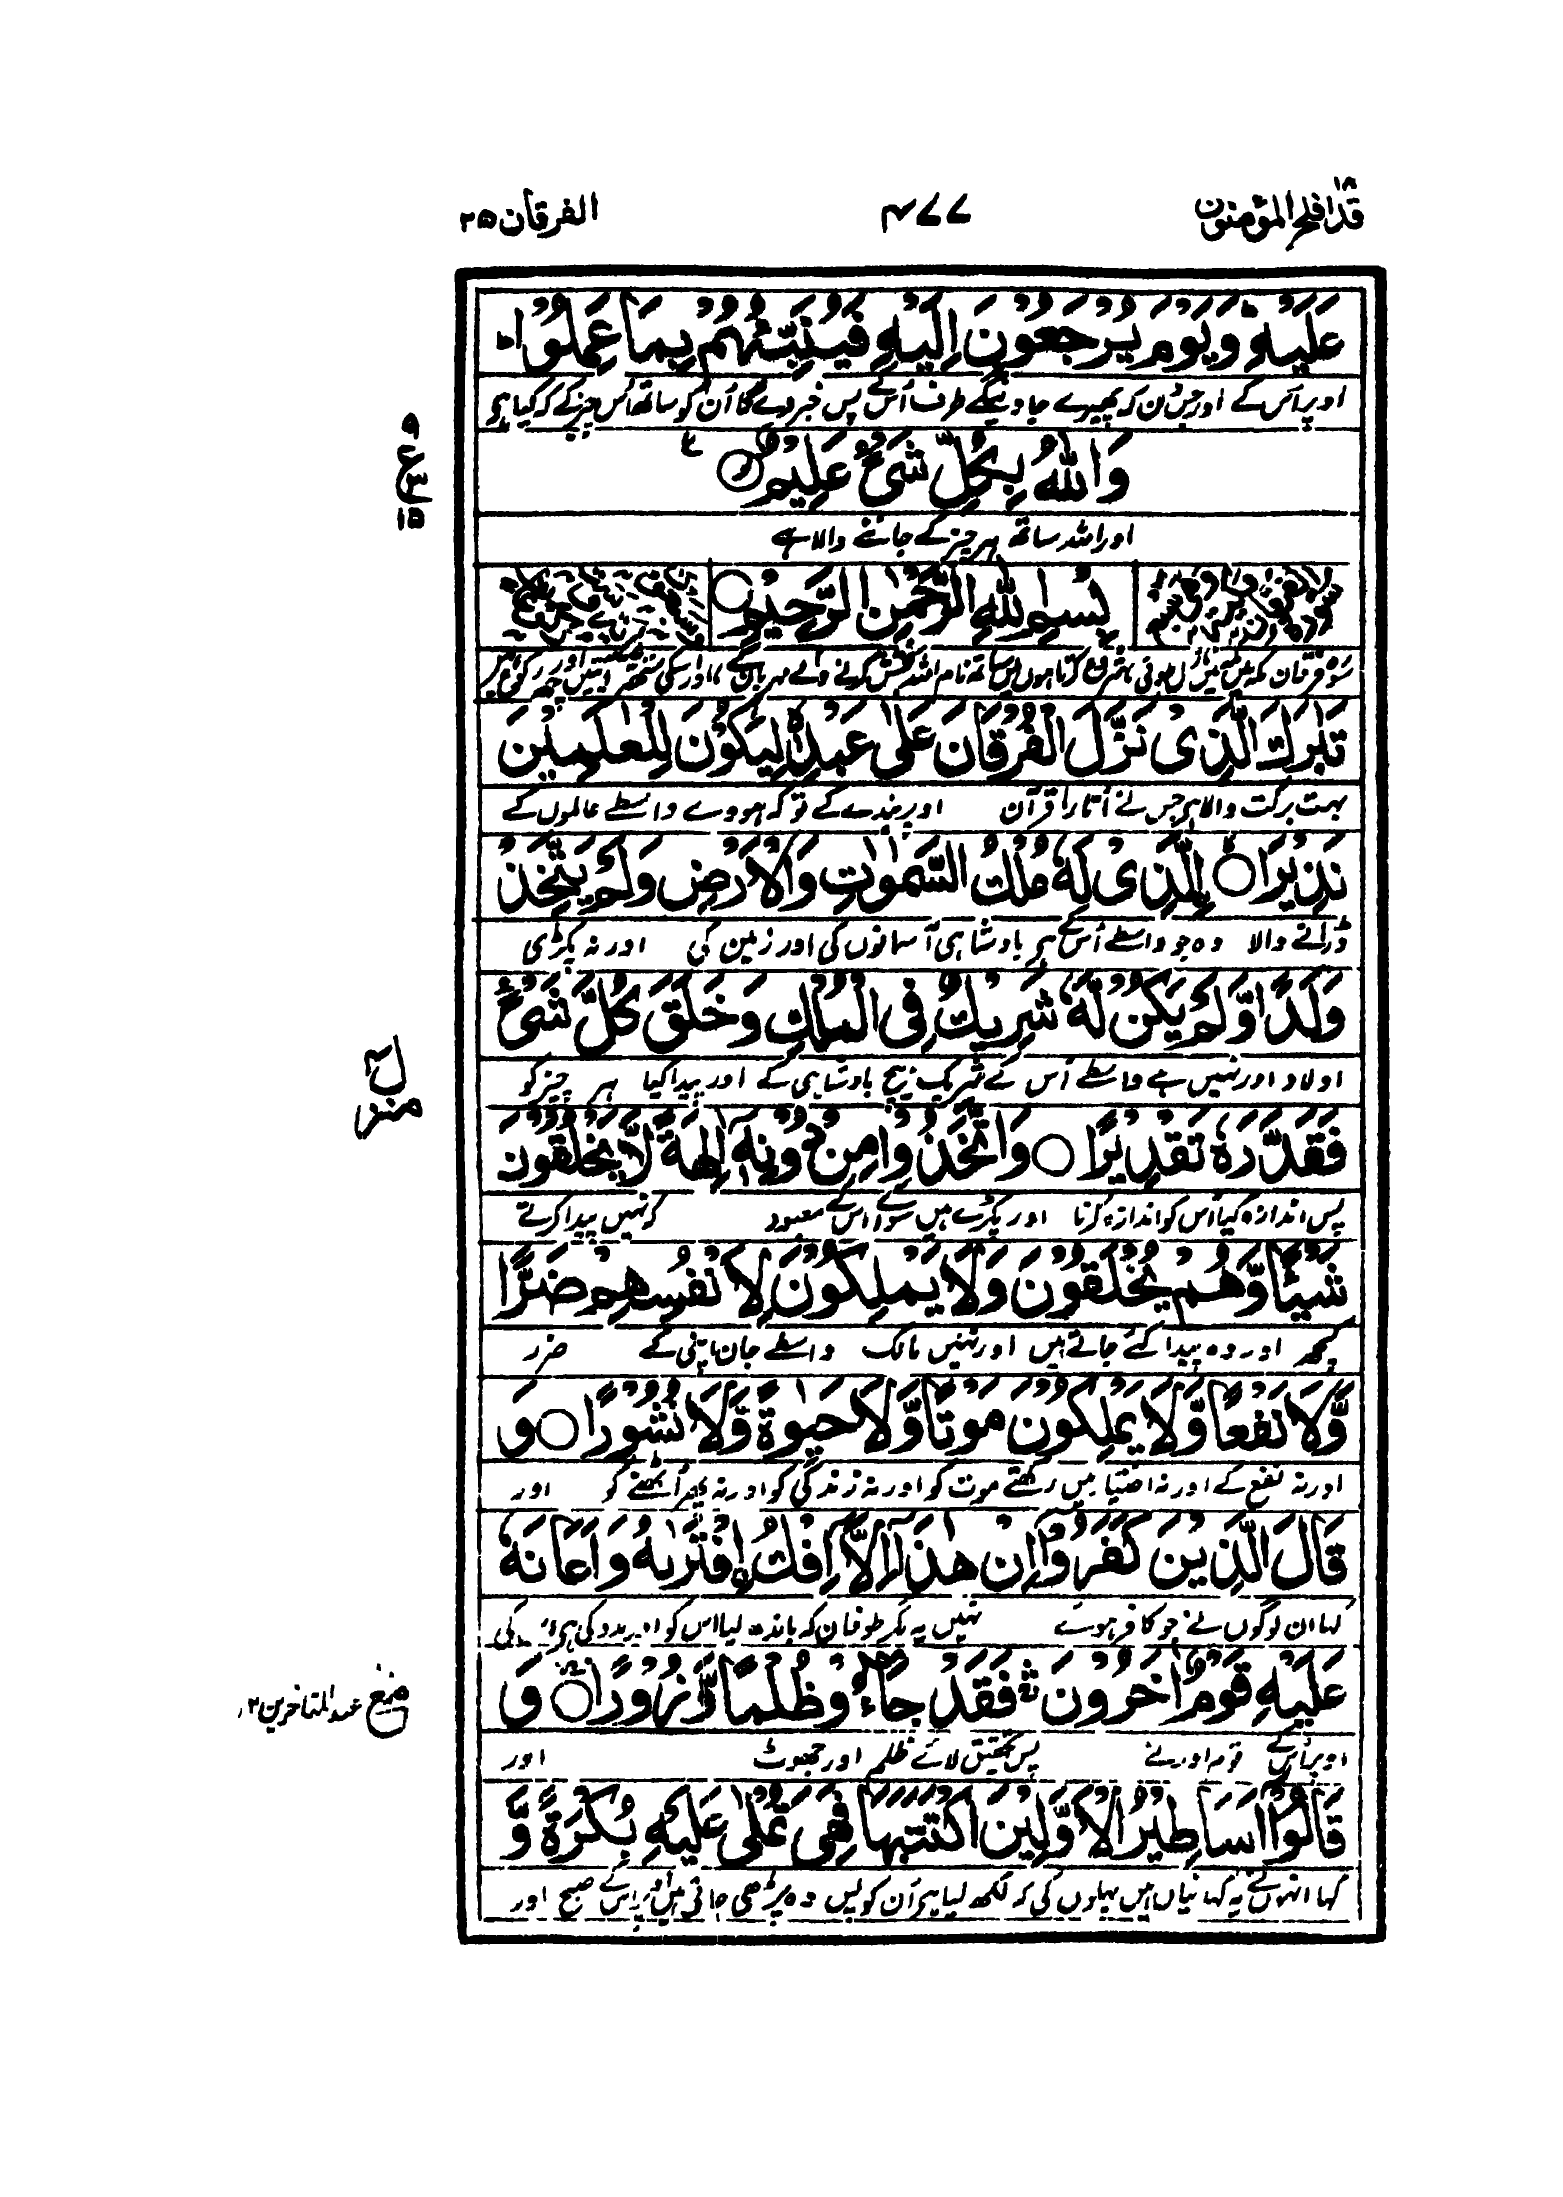 قد افلح المؤمنون ١٨
٤٧٧
الفرقان ٢٥
عَلَيْهِ ؕ وَيَوْمَ يُرْجَعُوْنَ اِلَيْهِ فَيُنَبِّئُهُمْ بِمَا عَمِلُوْا ؕ
اوپر اس کے اور جس دن کہ پھیرے جاوینگے طرف اُس کے پس خبر دے گا اُن کو ساتھ اُس چیز کے کہ کیا ہی
وَاللّٰهُ بِكُلِّ شَیْءٍ عَلِيْمٌ
٩
ع
٣
١٥
اور اللہ ساتھ ہر چیز کے جاننے والا ہے
بِسْمِ اللّٰهِ الرَّحْمٰنِ الرَّحِيْمِ
سورہ فرقان مکہ میں نازل ہوئی شروع کرتا ہوں میں ساتھ نام اللہ بخشش کرنے والے مہربان کے اور اسکی ستتر آیتیں اور چھ رکوع ہیں
تَبٰرَكَ الَّذِیْ نَزَّلَ الْفُرْقَانَ عَلٰی عَبْدِهٖ لِيَكُوْنَ لِلْعٰلَمِيْنَ
بہت برکت والا ہی جس نے اُتارا قرآن اوپر بندے کے تو کہ ہووے واسطے عالموں کے
نَذِيْرَا ۙ الَّذِیْ لَهٗ مُلْكُ السَّمٰوٰتِ وَالْاَرْضِ وَلَمْ يَتَّخِذْ
ڈرانے والا وہ جو واسطے اُس کے ہی بادشاہی آسمانوں کی اور زمین کی اور نہ پکڑی
وَلَدًا وَّلَمْ يَكُنْ لَّهٗ شَرِيْكٌ فِی الْمُلْكِ وَخَلَقَ كُلَّ شَیْءٍ
اولاد اور نہیں ہے واسطے اُس کے شریک بیچ بادشاہی کے اور پیدا کیا ہر چیز کو
منزل ٤
فَقَدَّرَهٗ تَقْدِيْرًا وَاتَّخَذُوْا مِنْ دُوْنِهٖٓ اٰلِهَةً لَّا يَخْلُقُوْنَ
پس اندازہ کیا اُس کو اندازہ کرنا اور پکڑے ہیں سوا اس کے معبود کہ نہیں پیدا کرتے
شَيْـًٔا وَّهُمْ يُخْلَقُوْنَ وَلَا يَمْلِكُوْنَ لِاَنْفُسِهِمْ ضَرًّا
کچھ اور وہ پیدا کئے جاتے ہیں اور نہیں مالک واسطے جان اپنی کے ضرر
وَّلَا نَفْعًا وَّلَا يَمْلِكُوْنَ مَوْتًا وَّلَا حَيٰوةً وَّلَا نُشُوْرًا وَ
اور نہ نفع کے اور نہ اختیار رکھتے ہیں موت کو اور نہ زندگی کو اور نہ پھر اُٹھنے کو اور
قَالَ الَّذِيْنَ كَفَرُوْٓا اِنْ هٰذَآ اِلَّآ اِفْكُ ۨ افْتَرٰىهُ وَاَعَانَهٗ
کہا ان لوگوں نے جو کافر ہوئے نہیں یہ مگر طوفان کہ باندھ لیا اس کو اور مدد کی ہی اس کی
عَلَيْهِ قَوْمٌ اٰخَرُوْنَ ۛ فَقَدْ جَآءُوْ ظُلْمًا وَّزُوْرًا ۛ وَ
مع
عند المتاخرین ١٢
اوپر اس کے قوم اور نے پس تحقیق لائے ظلم اور جھوٹ اور
قَالُوْٓا اَسَاطِيْرُ الْاَوَّلِيْنَ اكْتَتَبَهَا فَهِیَ تُمْلٰی عَلَيْهِ بُكْرَةً وَّ
کہا انہوں نے یہ کہانیاں ہیں پہلوں کی کہ لکھ لیا ہی اُن کو پس وہ پڑھی جاتی ہیں اوپر اس کے صبح اور